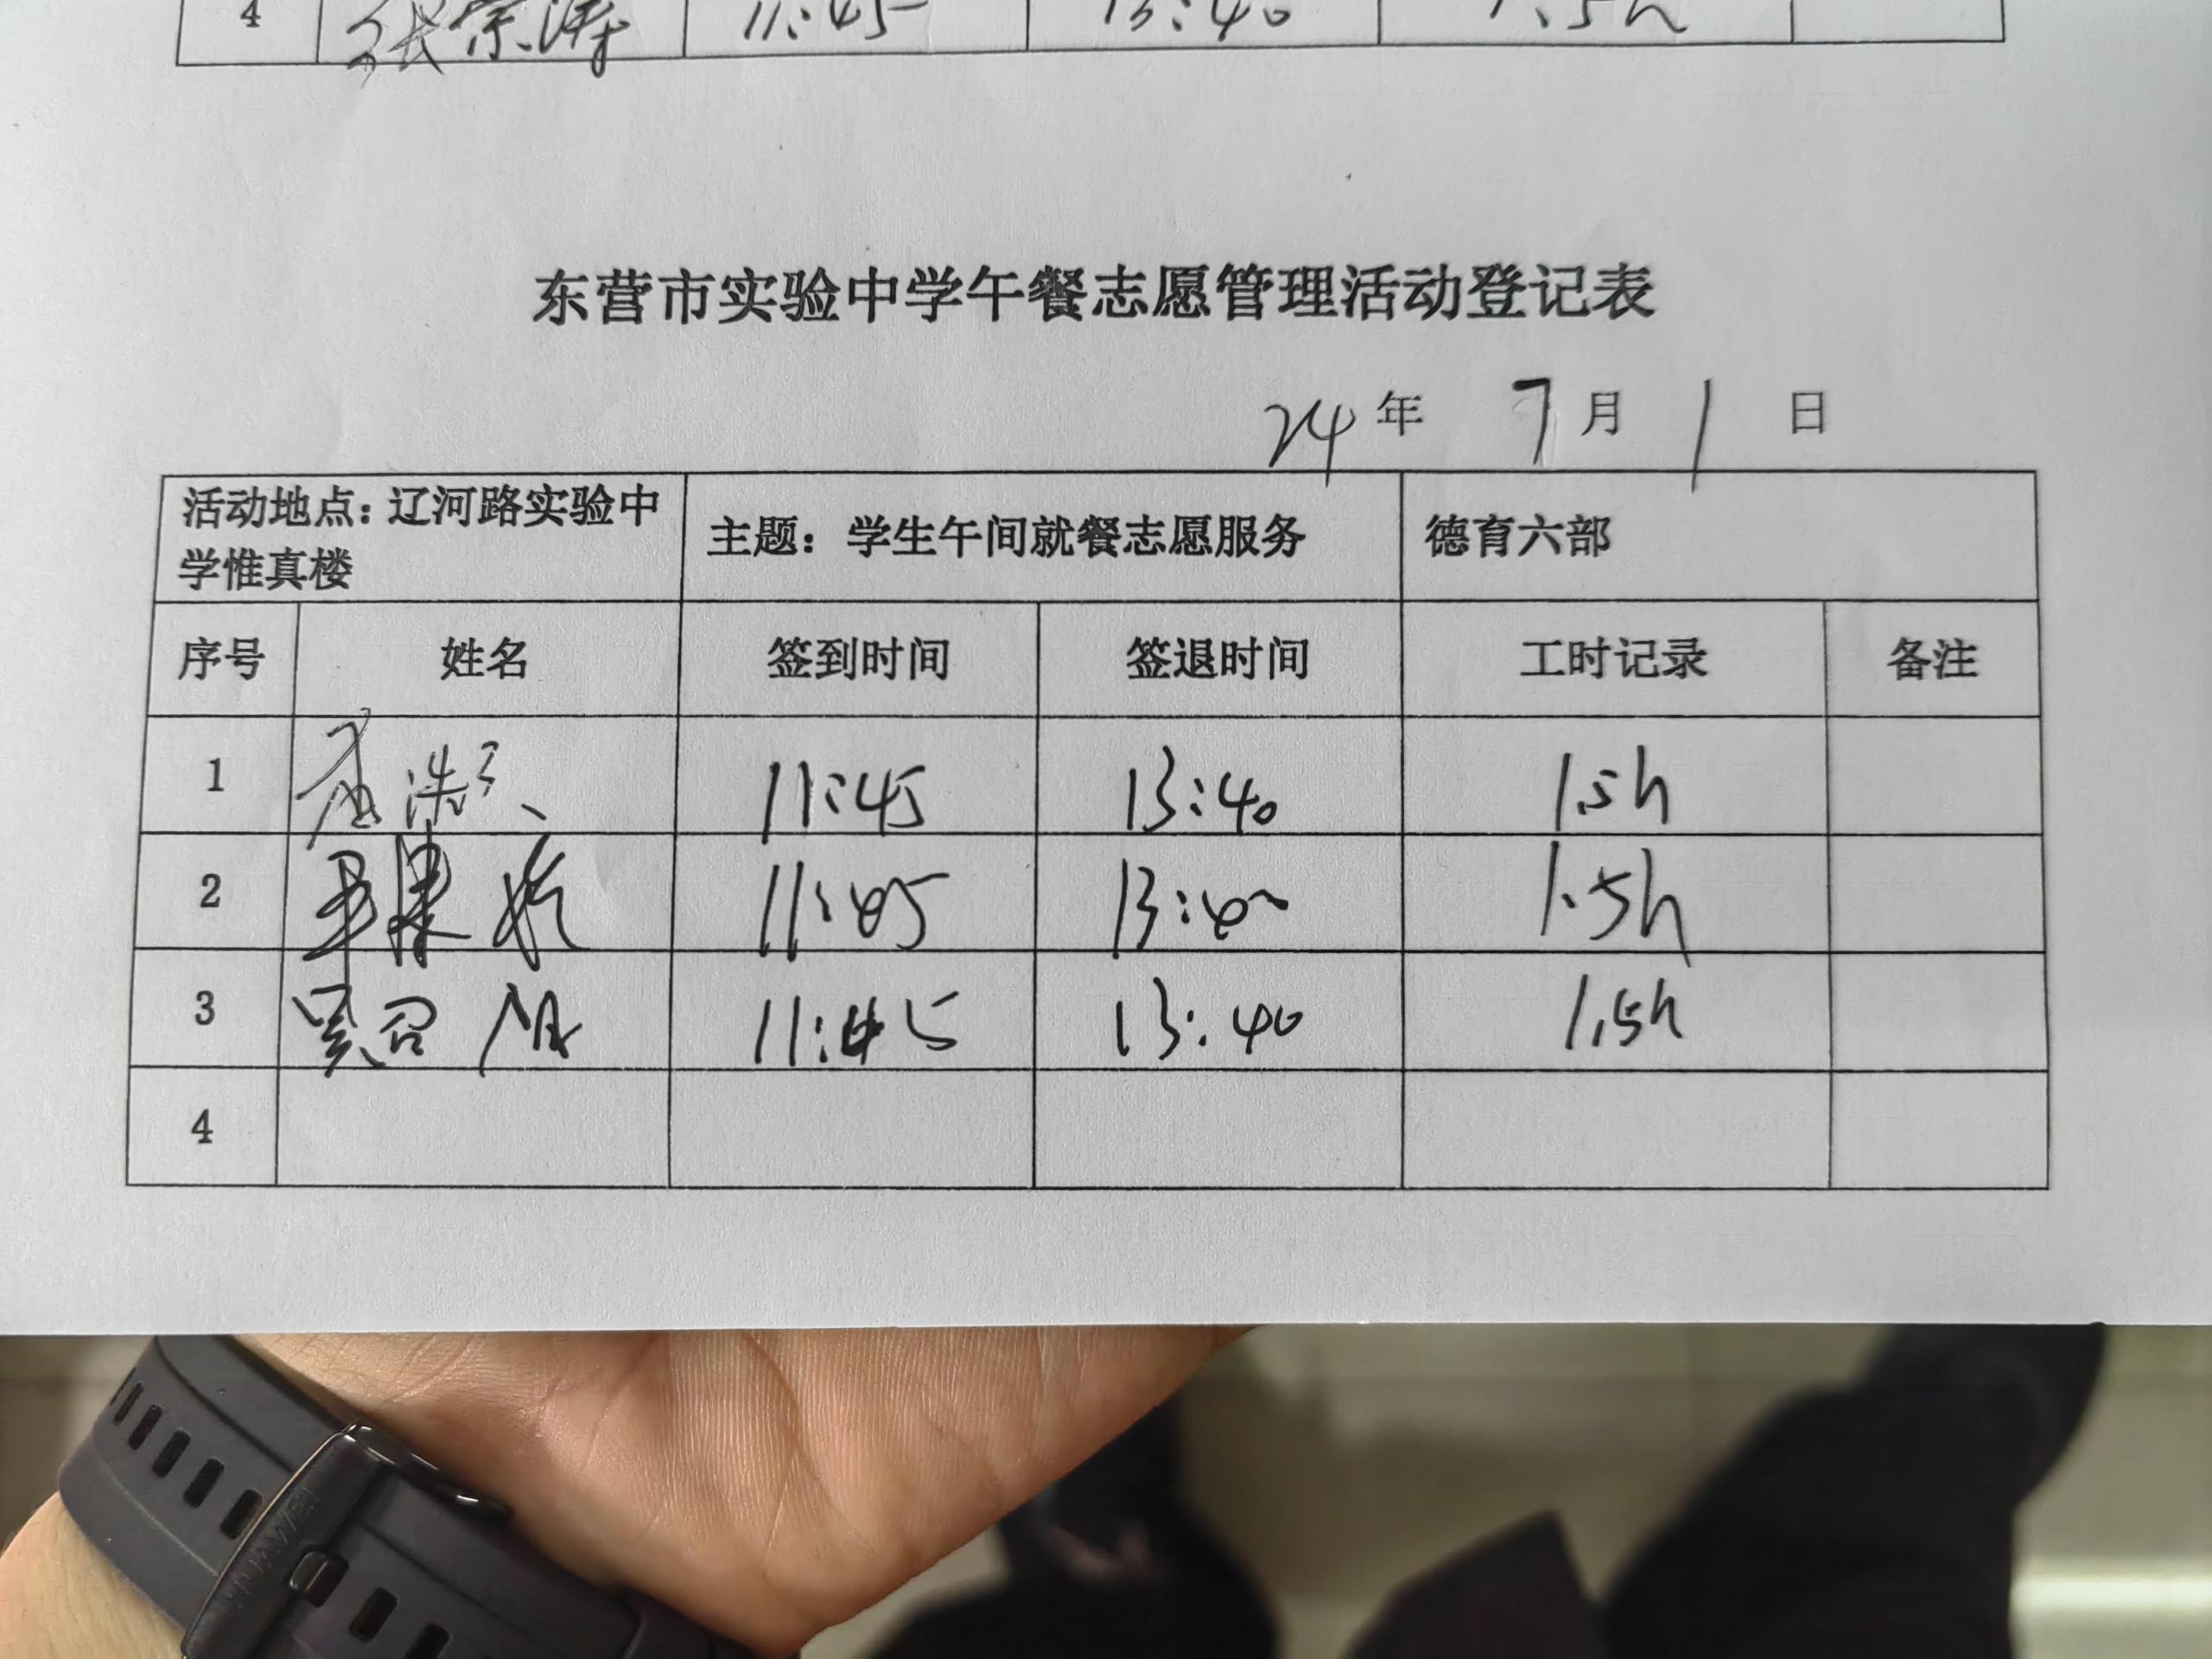 4 张宗涛 11:45 13:40 1.5h
东营市实验中学午餐志愿管理活动登记表
24年 7月 1日
活动地点：辽河路实验中
学惟真楼
主题：学生午间就餐志愿服务
德育六部
序号 姓名 签到时间 签退时间 工时记录 备注
1 11:45 13:40 1.5h
2 11:45 13:40 1.5h
3 吴召 11:45 13:40 1.5h
4
HUAWEI